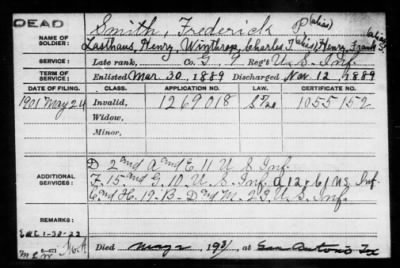 DEAD
NAME OF SOLDIER:
Smith, Frederick P (alias)
Lasthaus, Henry, Winthrop, Charles T (alias) Henry, Frank S. (alias)
SERVICE:
Late rank, Co. G, 9 Reg't U. S. Inf.
TERM OF SERVICE:
Enlisted Mar. 30, 1889 Discharged Nov. 12, 1889
DATE OF FILING. CLASS. APPLICATION NO. CERTIFICATE NO.
1901 May 24 Invalid, 1269018 1055152
Widow,
Minor,
ADDITIONAL SERVICES:
D 2nd and E 11 U S Inf.
F. 15 and G. 10 U. S. Inf. U S Inf
U. S. Inf.
REMARKS:
Died 193 at San Antonio Tex